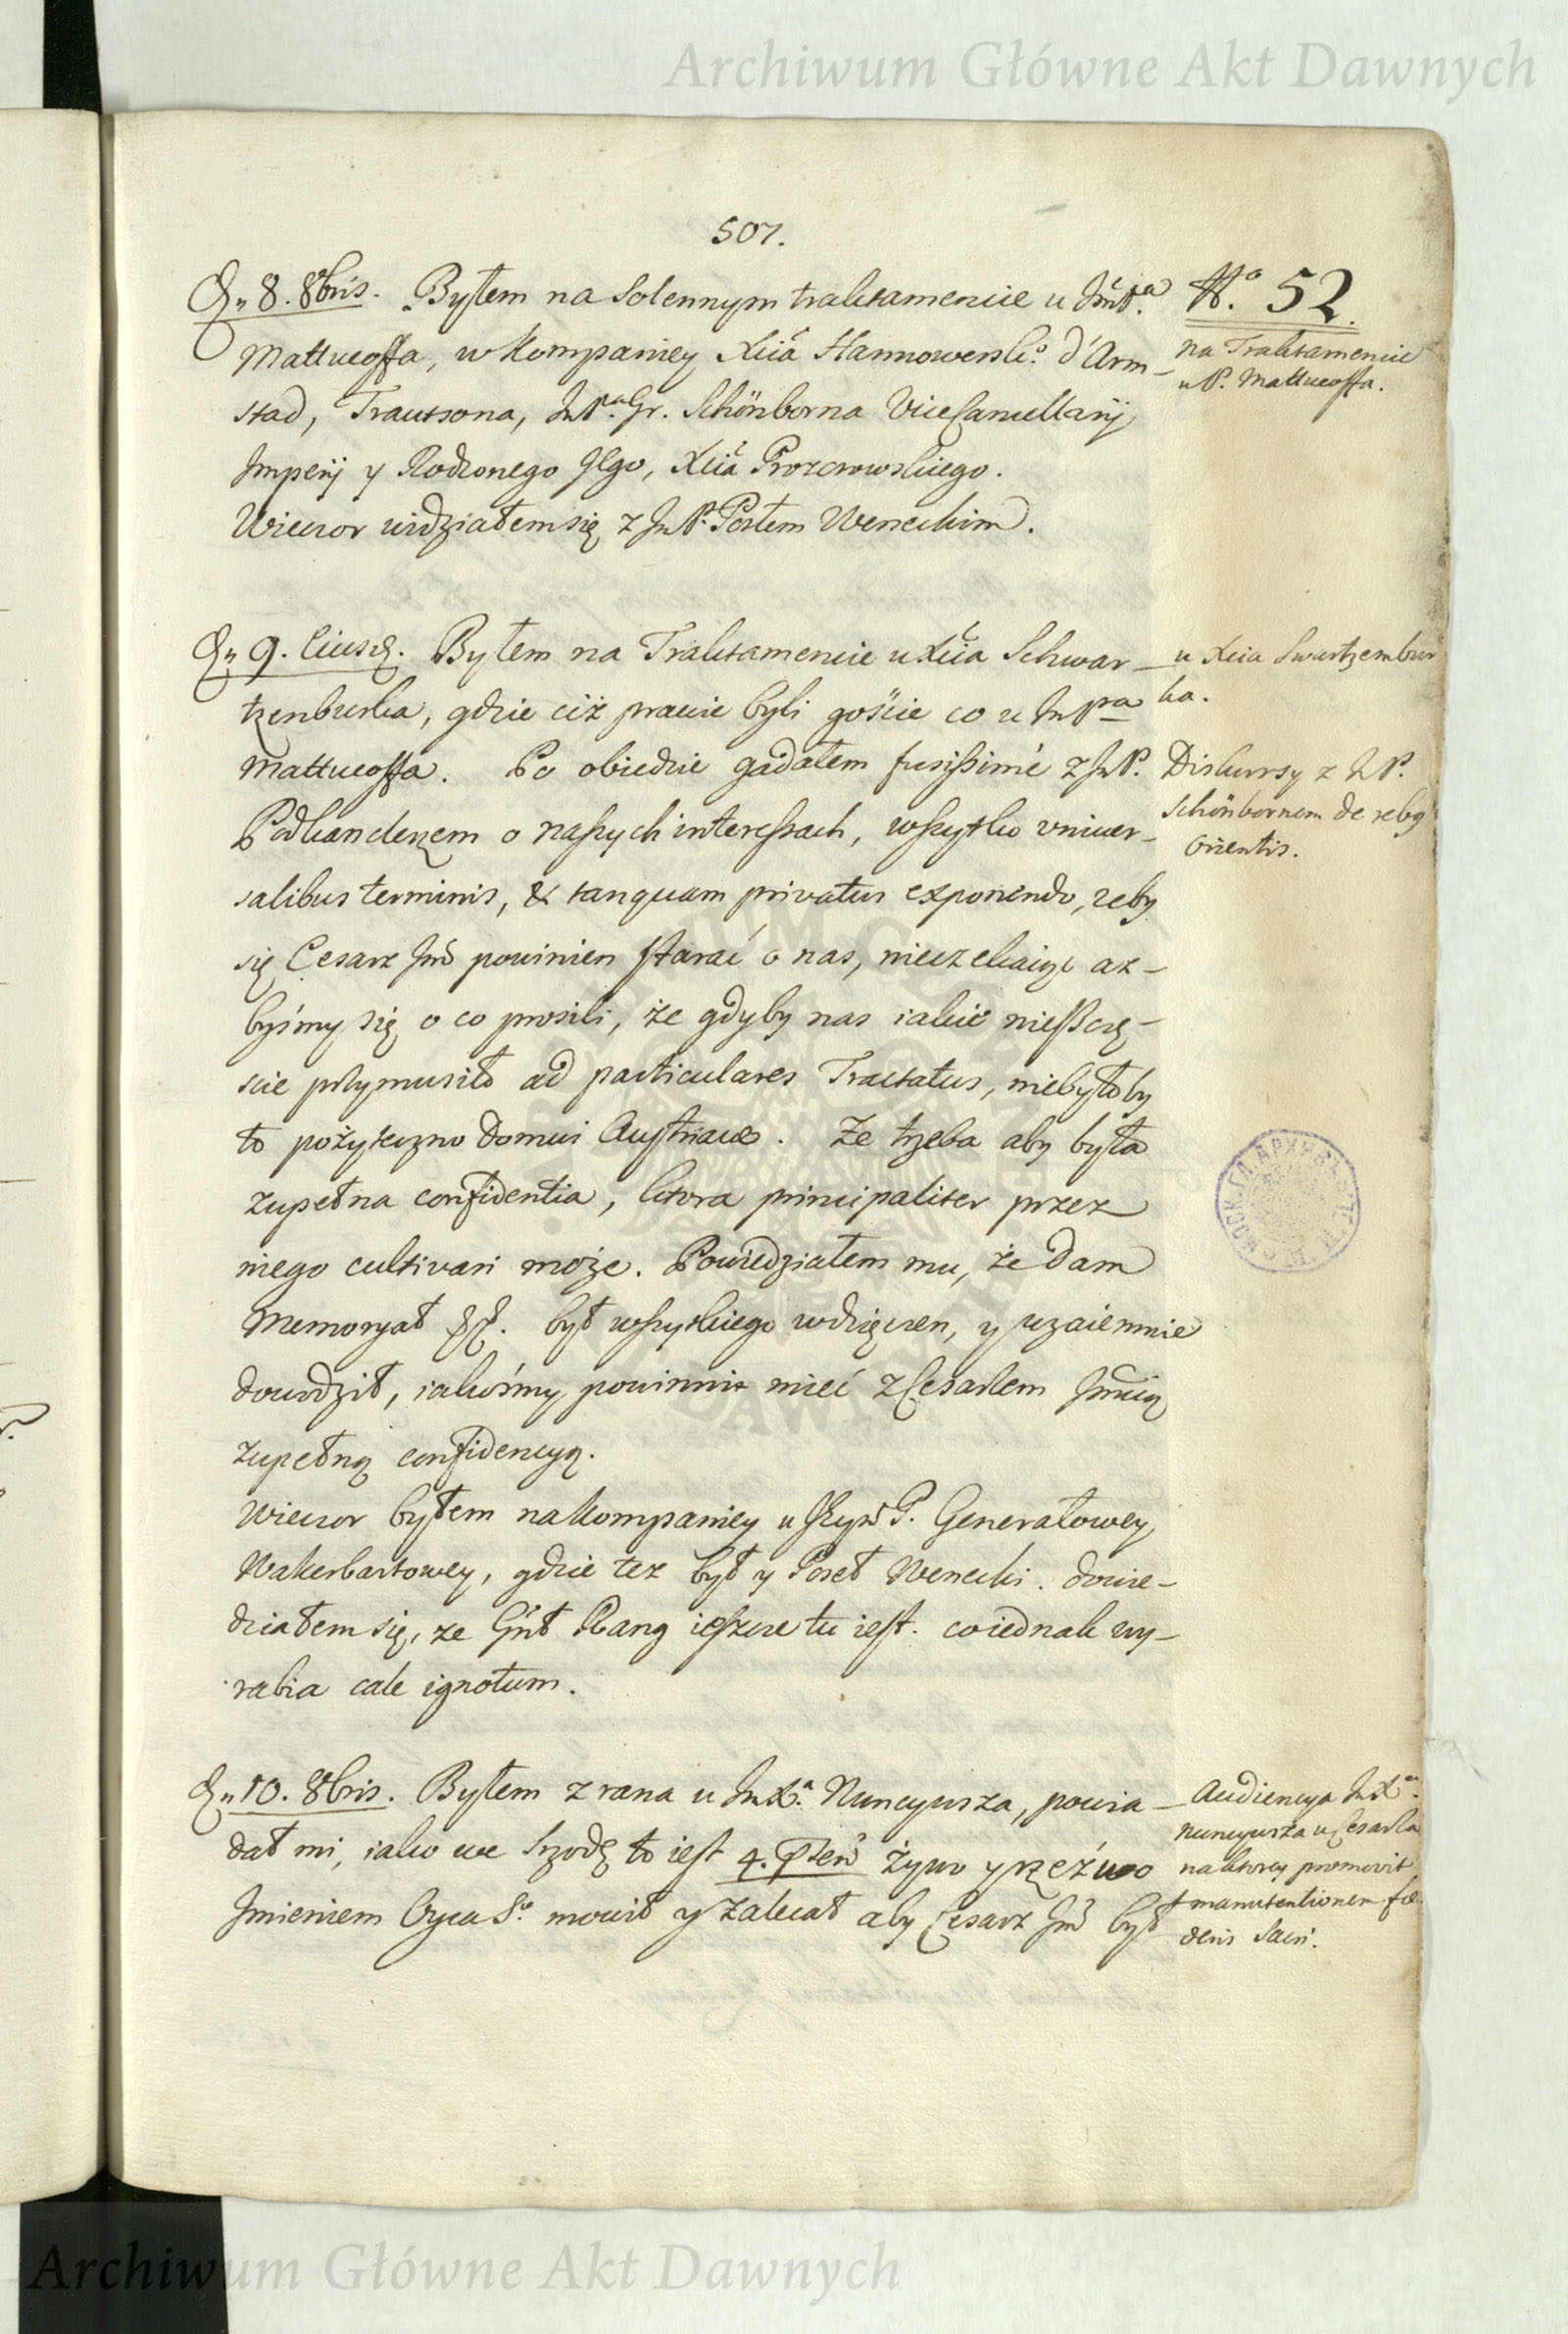 Archiwum Główne Akt Dawnych
507.
D„ 8. 8bris. Byłem na solennym traktamencie u JmPa
Mattueoffa, w kompaniey Xcia Hannowersko d'Arm-
stad, Trautsona, JmPa Gr. Schönborna ViceCancellarij
Imperij y Rodzonego Jego, Xcia Prozorowskiego.
Wieczor widziałem się z JmP. Posłem Weneckim.
No 52.
na Traktamencie
u P. Mattueoffa.
D„ 9. Eiusd. Byłem na Traktamencie u Xcia Schwar-
tzenburka, gdzie ciż prawie byli goście co u JmPa
Mattueoffa. Po obiedzie gadałem fusissimé z JmP.
Podkanclerzem o naszych interessach, wszytko vniver-
salibus terminis, & tanquam privatus exponendo, zeby
się Cesarz Jmć powinien starać o nas, nieczekaiąc az-
byśmy się o co prosili, że gdyby nas iakie nieszczę-
scie przymusiło ad particulares Tractatus, niebyłoby
to pożyteczno Domui Austriacae. Ze trzeba aby była
zupełna confidentia, ktora principaliter przez
niego cultivari może. Powiedziałem mu, że dam
Memoryał. był wszytkiego wdzięczen, y wzaiemnie
dowodził, iakośmy powinni mieć z Cesarzem Jmcią
zupełną confidencyą.
Wieczor byłem na kompaniey u P. Generałowey
Wakerbartowey, gdzie tez był y Poseł Wenecki. dowie-
działem się, ze Gnł Rang ieszcze tu iest. co iednak wy-
rabia cale ignotum.
u Xcia Swartzembur
ka.
Diskursy z JmP.
Schönbornem de rebus
Orientis.
D„ 10. 8bris. Byłem z rana u JmXa Nuncyusza, powia-
dał mi, iako we Srzodę to iest 4. Żywo y rzeźwo
Imieniem Oyca So mowił y zalecał aby Cesarz Jmć był
Audiencya JmXa
Nuncyusza u Cesarza
na ktorey promovit
manutentionem foe-
deris Sacri.
Archiwum Główne Akt Dawnych